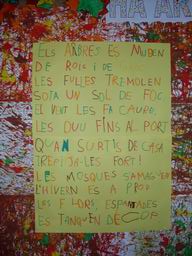 HA AR
ELS ARBRES ES MUDEN
DE ROIG I DE
LES FULLES TREMOLEN
SOTA UN SOL DE FOC
EL VENT LES FA CAURE,
LES DUU FINS AL PORT
QUAN SURTIS DE CASA
TREPITJA-LES FORT!
LES MOSQUES S'AMAGUEN
L'HIVERN ES A PROP
LES FLORS, ESPANTADES
ES TANQUEN DE COP